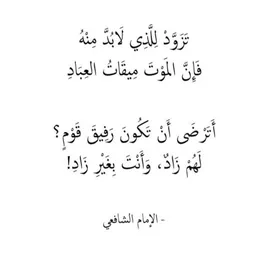 تَزَوَّدْ لِلَّذِي لَابُدَّ مِنْهُ
فَإِنَّ المَوْتَ مِيقَاتُ العِبَادِ
أَتَرْضَى أَنْ تَكُونَ رَفِيقَ قَوْمٍ؟
لَهُمْ زَادٌ، وَأَنْتَ بِغَيْرِ زَادِ!
- الإمام الشافعي